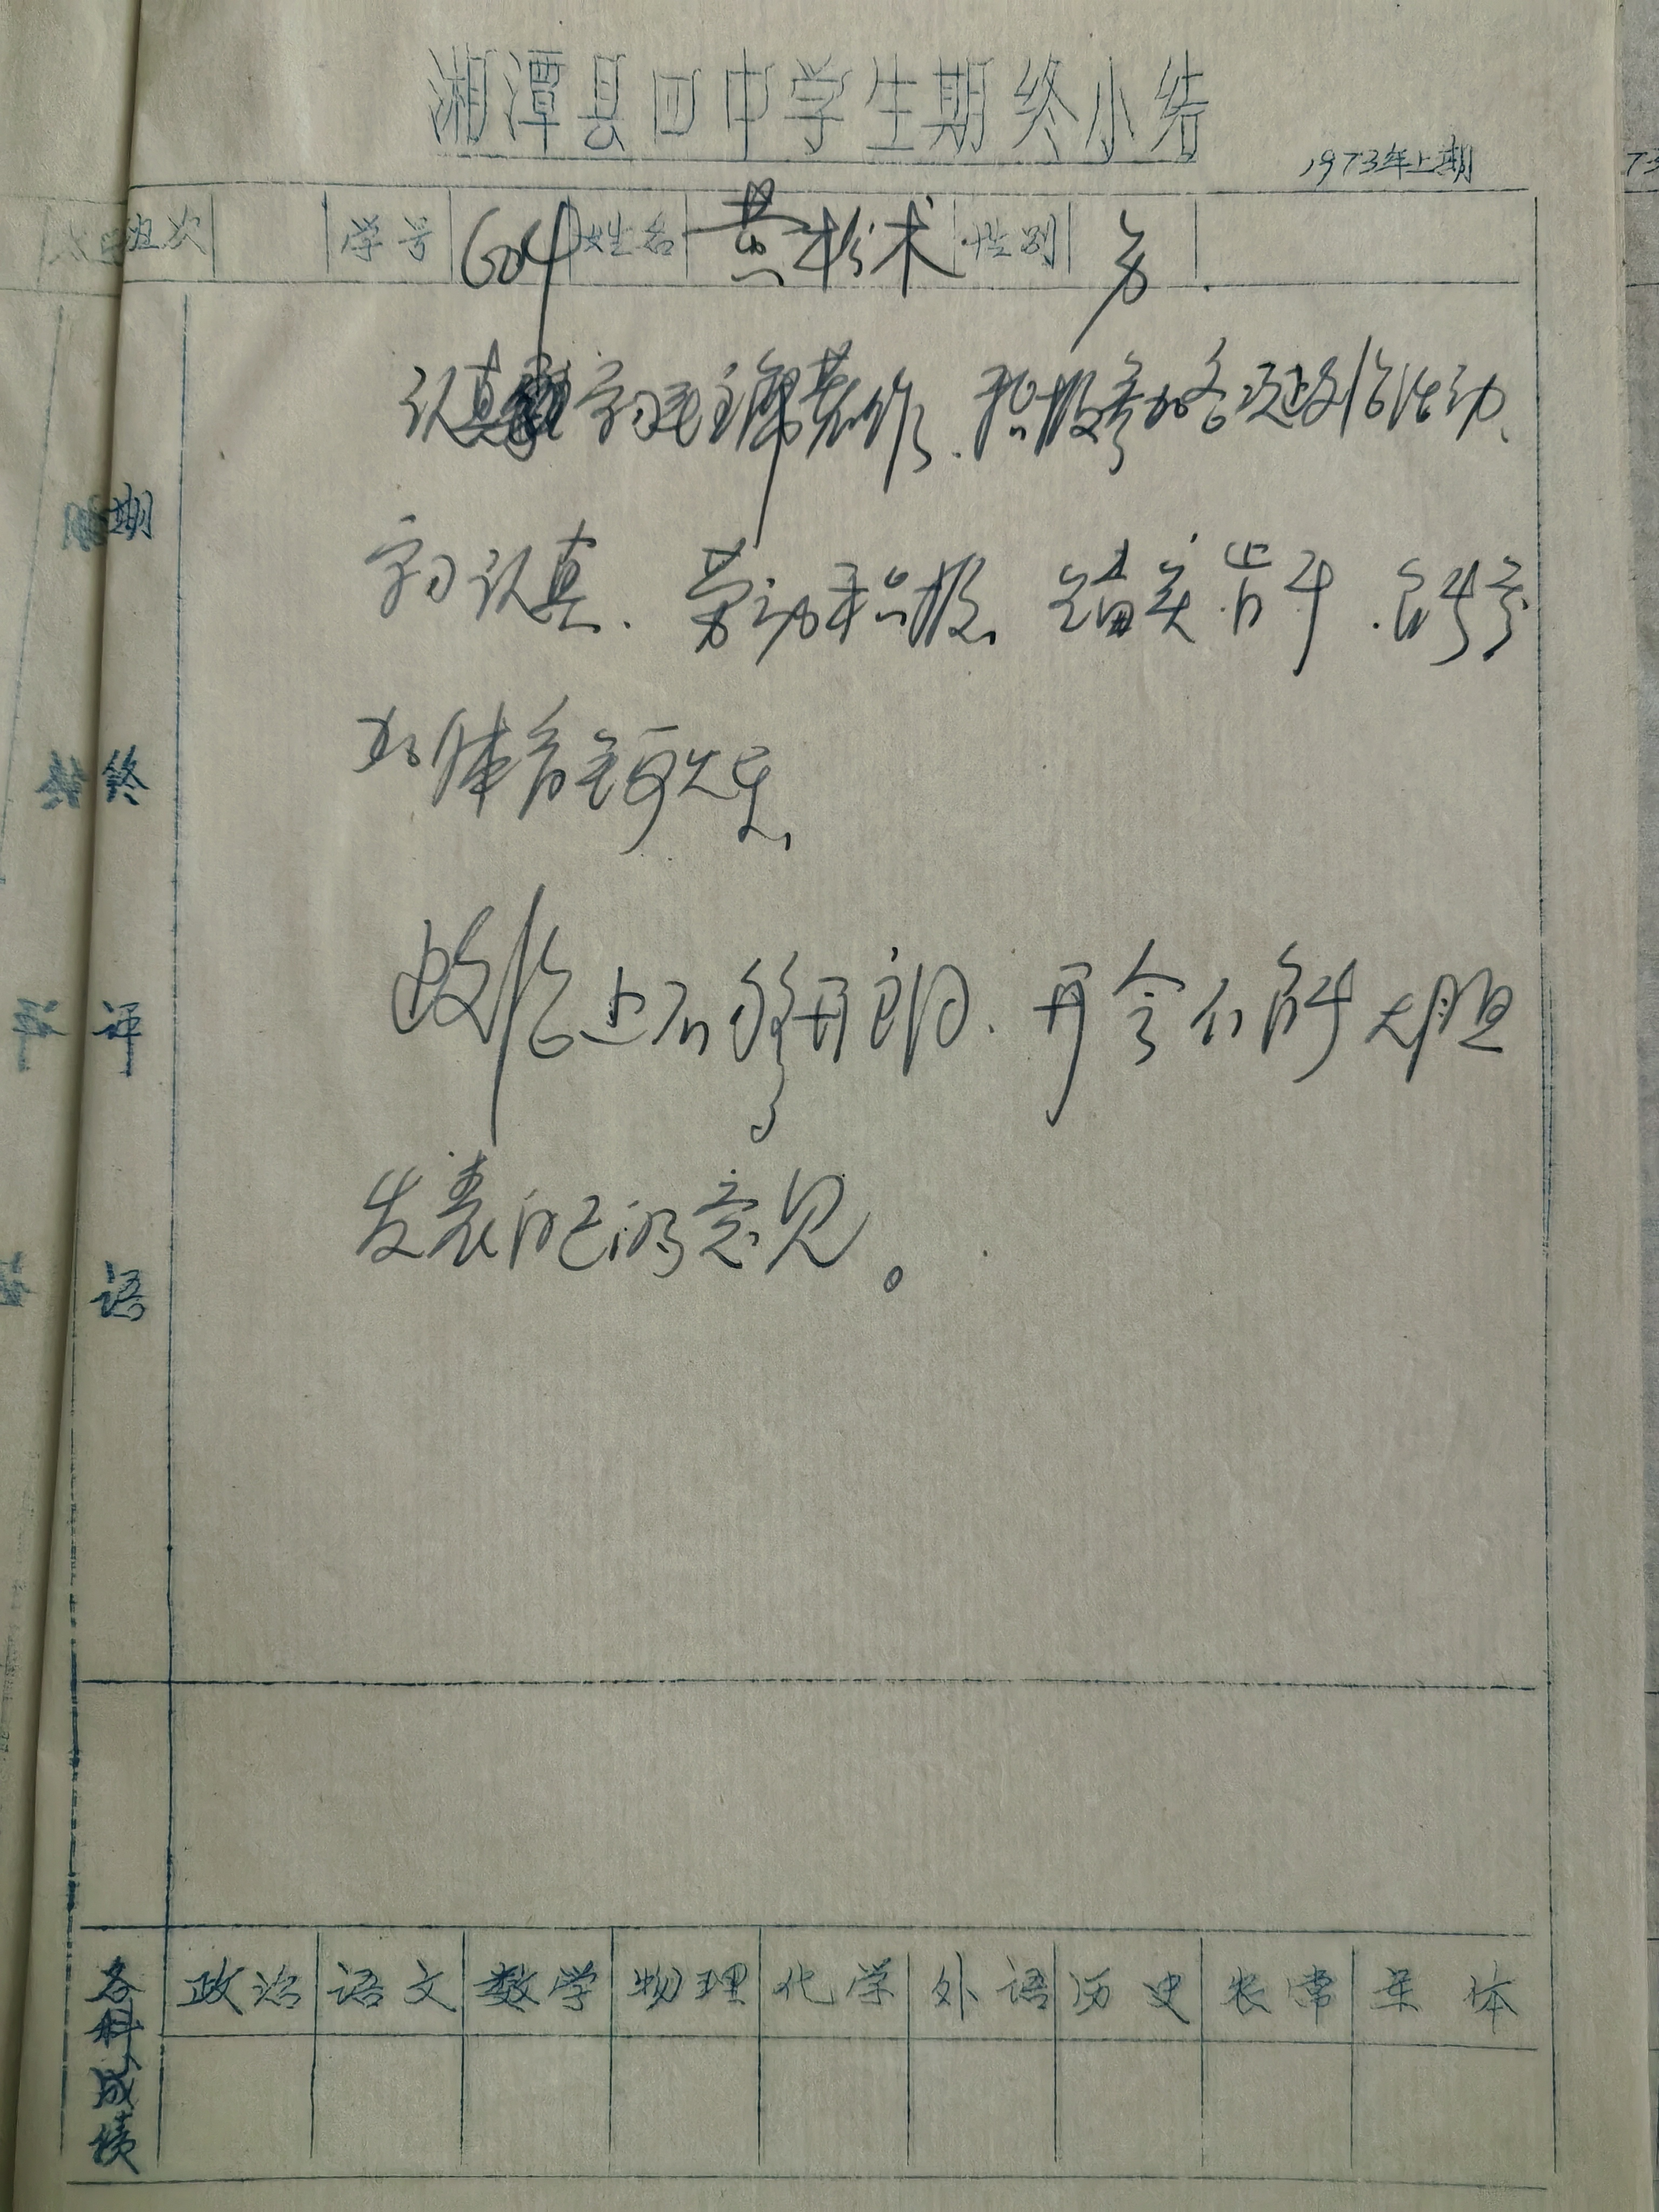 湘潭县四中学生期终小结
1973年上期
班次 学号 604 姓名 黄松术 性别 男
认真学习毛主席著作、积极参加各项政治活动、
学习认真、劳动积极、能参
加体育锻炼
政治上不够开朗、开会不能大胆
发表自己的意见。
期终评语
各科成绩 政治 语文 数学 物理 化学 外语 历史 农常 军体